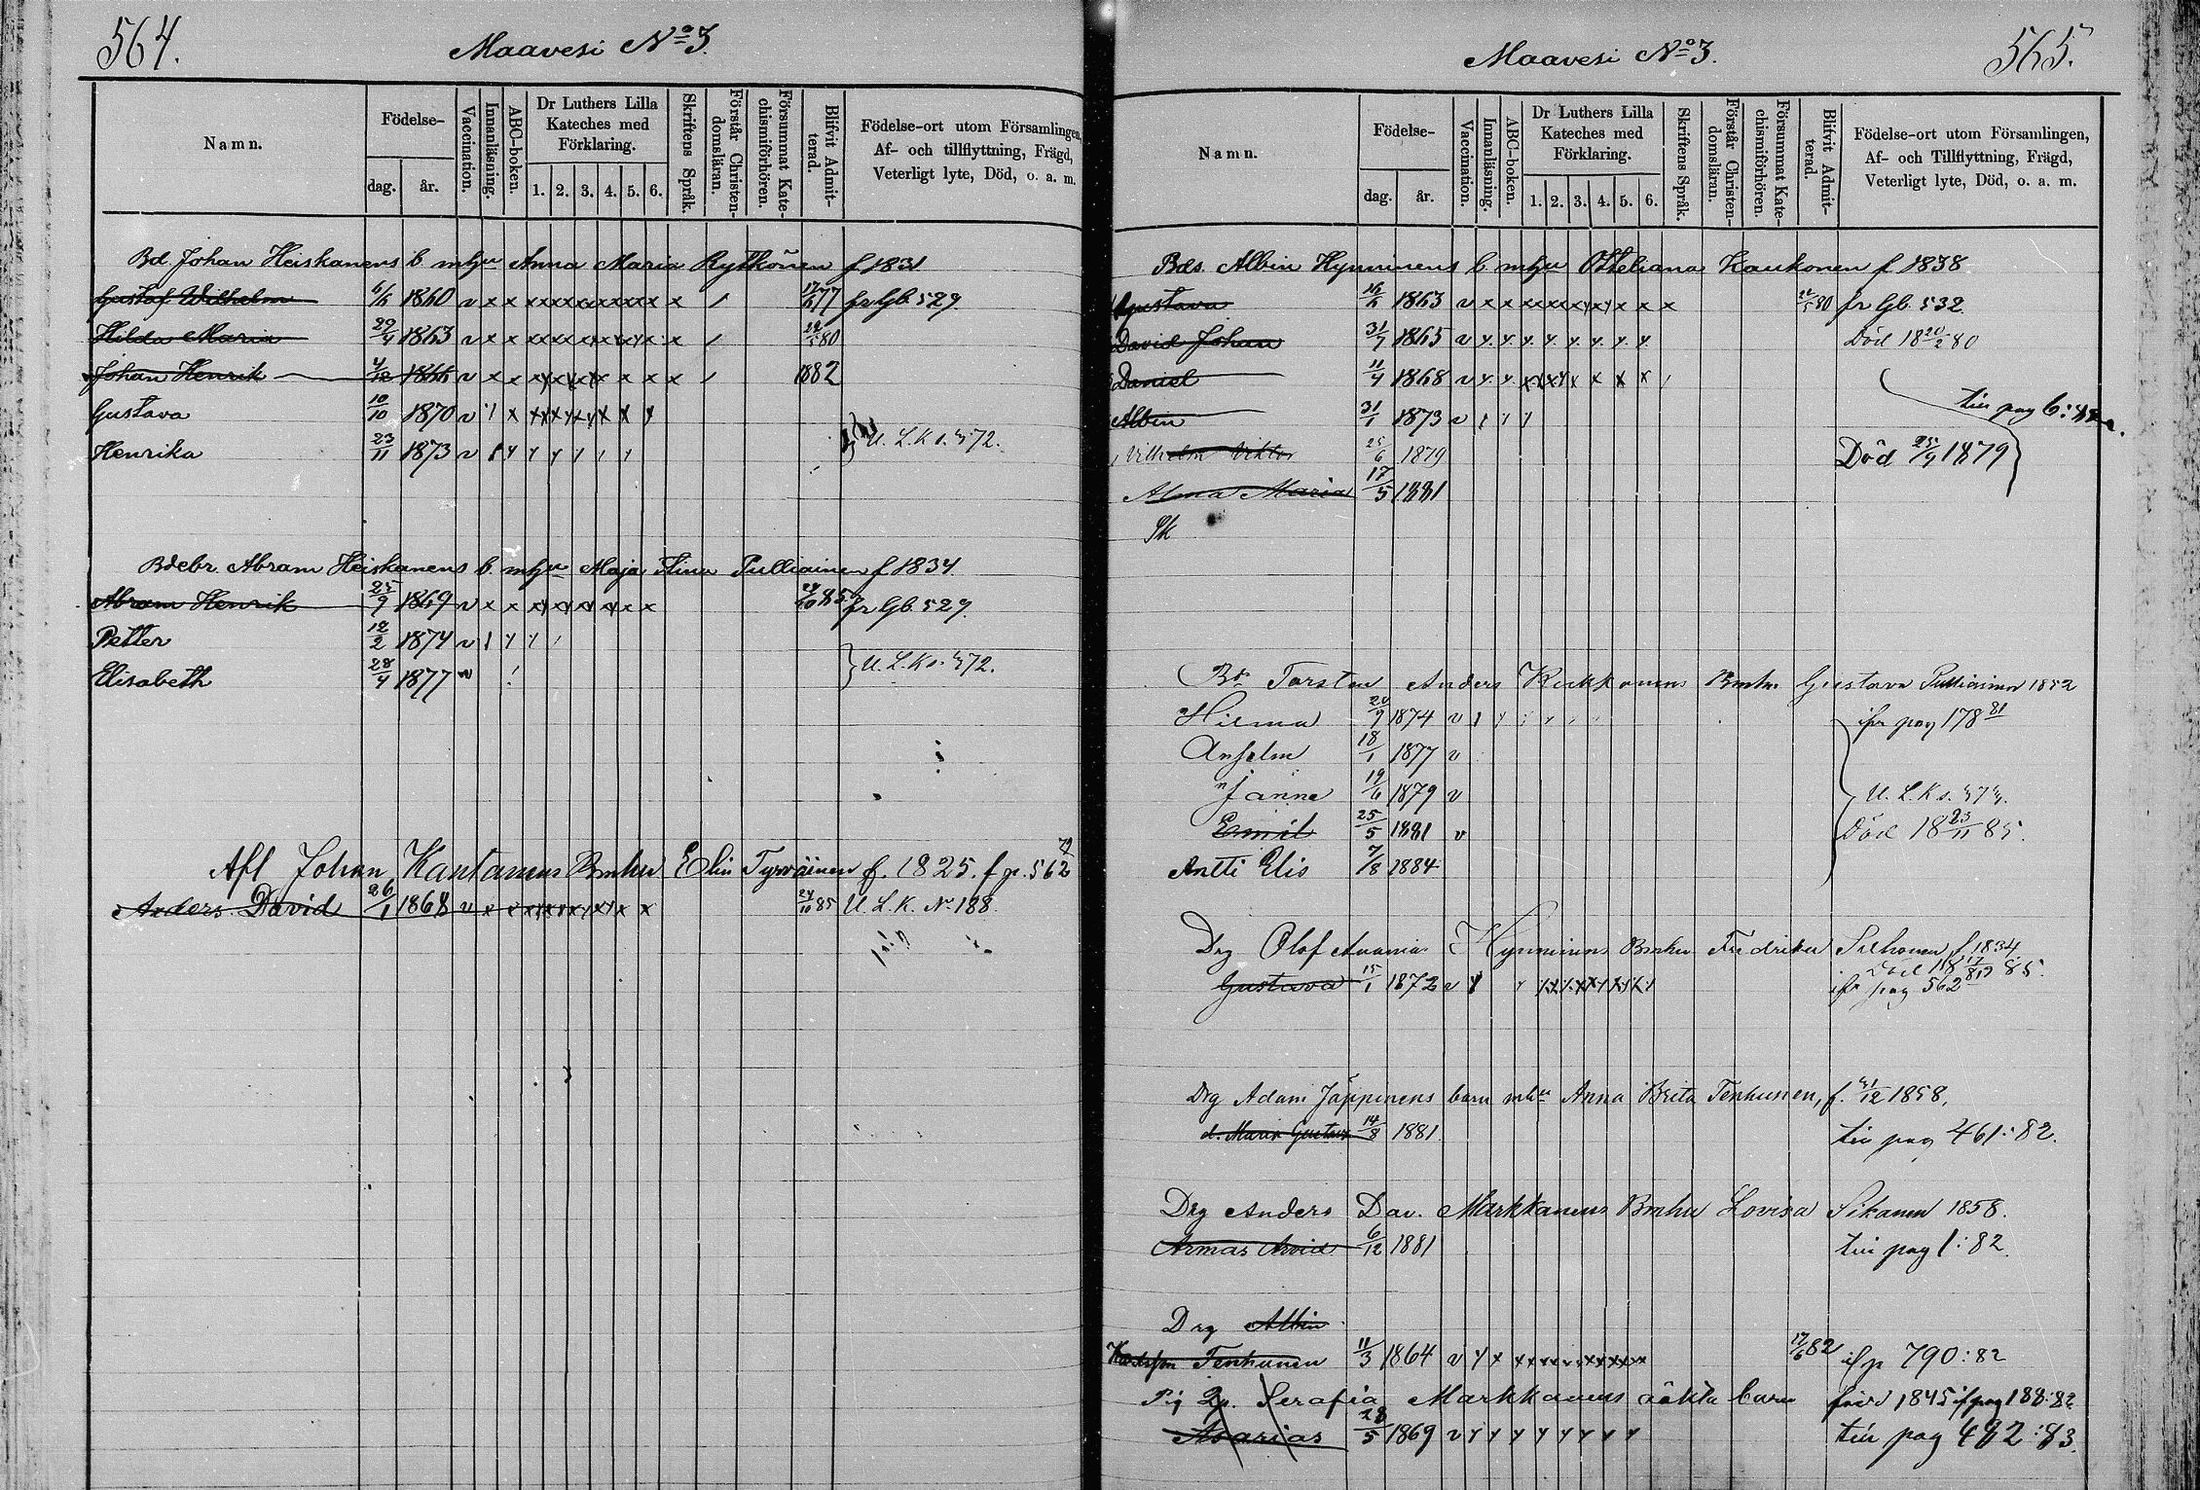 564.
Maavesi No 3.
Namn.
Födelse-
dag.
år.
Vaccination.
Innanläsning.
ABC-boken.
Dr Luthers Lilla
Kateches med
Förklaring.
1. 2. 3. 4. 5. 6.
Skriftens Språk.
Förstår Christen-
domsläran.
Försummat Kate-
chismiförhören.
Blifvit Admit-
terad.
Födelse-ort utom Församlingen,
Af- och tillflyttning, Frägd,
Veterligt lyte, Död, o. a. m.
Bd Johan Heiskanens b. mhu Anna Maria Rytkönen f 1831
Gustaf Wilhelm 6/6 1860 v x x x x x x x x x x x x 17/6 77 fr Gb. 529.
Hilda Maria 29/4 1863 v x x x x x x x x x x x x 80
Johan Henrik 4/12 1866 v x x x x x x x x x x x 1882
Gustava 10/10 1870 v
Henrika 23/11 1873 v U. L. K. s. 572.
Bdebr Abram Heiskanens b. mhu Maja Stina Pulliainen f 1834.
Abram Henrik 25/9 1869 v x x x x x x x x x x 24/10 85 fr Gb. 529.
Petter 12/2 1874 v
Elisabeth 28/4 1877 v U. L. K. s. 572.
Afl Johan Kantanens Bmhu Elin Tyrväinen f. 1825. f p. 562
Anders David 26/1 1868 v x x x x x x x x x 24/10 85 U. L. K. No 188.
Maavesi No 3.
565.
Namn.
Födelse-
dag.
år.
Vaccination.
Innanläsning.
ABC-boken.
Dr Luthers Lilla
Kateches med
Förklaring.
1. 2. 3. 4. 5. 6.
Skriftens Språk.
Förstår Christen-
domsläran.
Försummat Kate-
chismiförhören.
Blifvit Admit-
terad.
Födelse-ort utom Församlingen,
Af- och Tillflyttning, Frägd,
Veterligt lyte, Död, o. a. m.
Bds. Albin Hynninens b mhu Otteliana Kaukonen f 1838
Gustava 16/6 1863 v x x x x x x x x x x x 80 fr Gb. 532.
David Johan 31/7 1865 v Död 18 20/2 80
Daniel 11/4 1868 v
Albin 31/1 1873 v
Vilhelm Viktor 25/6 1879 Död 25/9 1879
Alma Maria 17/5 1881
Torsten Anders Kukkonens Bmhu Gustava Pulliainen 1852
Hilma 20/9 1874 v ifr pag 178 81
Anselm 18/1 1877 v
Janne 19/6 1879 v U. L. K. s.
Emil 25/5 1881 v Död 18 23/11 85.
Antti Elis 7/8 1884
Drg Olof Hynninens Bmhu Fredrika f 1834
Gustava 15/1 1872 v ifr pag 562
Drg Adam Jäppinens barn mhu Anna Brita Tenhunen, f. 31/12 1858,
d. Maria Gustava 14/8 1881 till pag 461:82.
Drg Anders Dav. Markkanens Bmhu Lovisa Sikanen 1858.
Armas Arvid 6/12 1881 till pag 1:82.
Drg Albin
Tenhunen 11/3 1864 v x x x x x x x x x 17/6 82 if p 790:82
Pig Serafia Markkanens oäkta barn född 1845 if pag 188:82
Asarias 28/5 1869 v till pag 482:83.